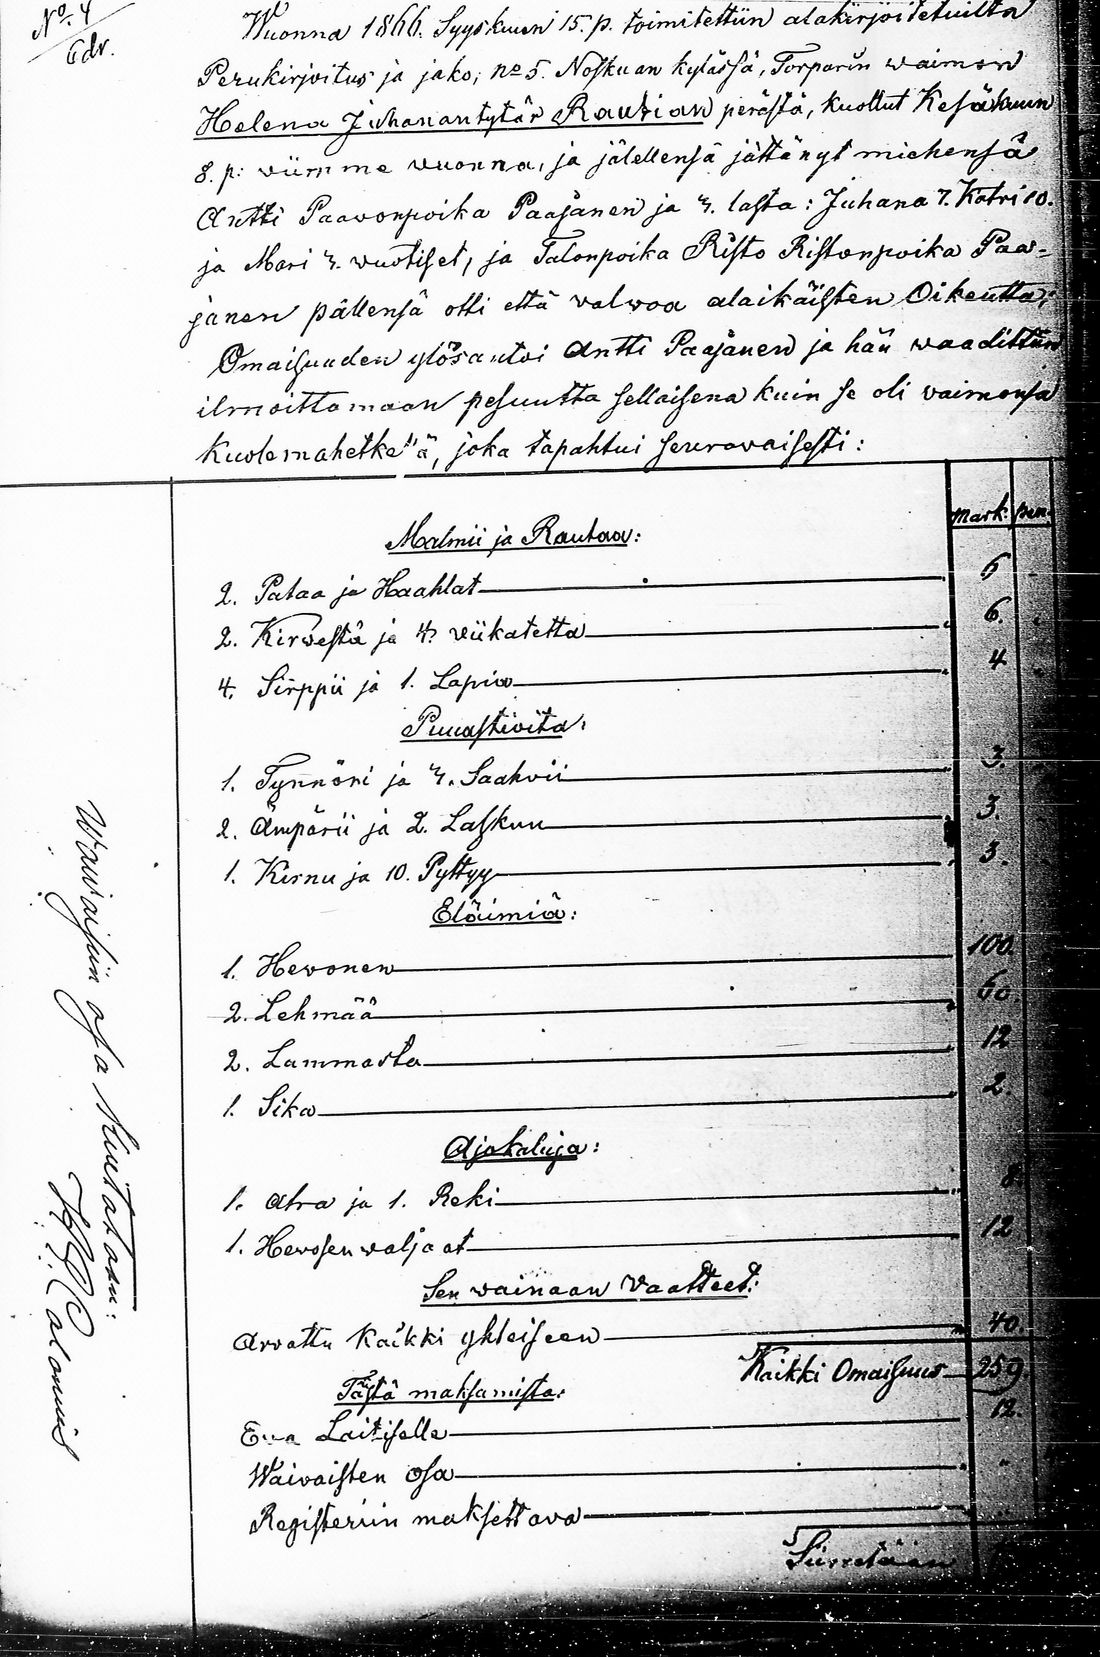 No. 4
Edr.
Wuonna 1866. Syyskuun 15. p. toimitettiin alakirjoitetuilta
Perukirjoitus ja jako, no 5. Noskuan kylässä, Torparin waimon
Helena Juhanantytär Rautian perästä, kuollut Kesäkuun
8. p: wiimme wuonna, ja jälellensä jättänyt miehensä
Antti Paawonpoika Paajanen ja 3. lasta: Juhana 7. Katri 10.
ja Mari 3. wuotiset, ja Talonpoika Risto Ristonpoika Paa-
janen pällensä otti että valwoa alaikäisten Oikeutta;
Omaisuuden ylösantoi Antti Paajanen ja hän waadittiin
ilmoittamaan pesuutta sellaisena kuin se oli vaimonsa
Kuolemahetkellä, joka tapahtui seurawaisesti:
Mark: pen.
Malmii ja Rautaa:
2. Pataa ja Haahlat 5
2. Kirwestä ja 4. viikatetta 6.
4. Sirppii ja 1. Lapio 4
Puuastioita:
1. Tynnöri ja 3. Saahvii 3.
2. Ämpärii ja 2. Laskuu 3.
1. Kirnu ja 10. Pyttyy 3.
Eläimiä:
1. Hevonen 100.
2. Lehmää 60.
2. Lammasta 12
1. Sika 2.
Ajokaluja:
1. Atra ja 1. Reki 8
1. Hevosen waljaat 12
Sen wainaan Vaatteet:
Arvattu Kaikki yhteiseen 40.
Kaikki Omaisuus 259.
Tästä maksamista:
Eva Laitiselle 12.
Waivaisten osa "
Registeriin maksettava "
Siirretään
Waivaisiin osa kuitataan: